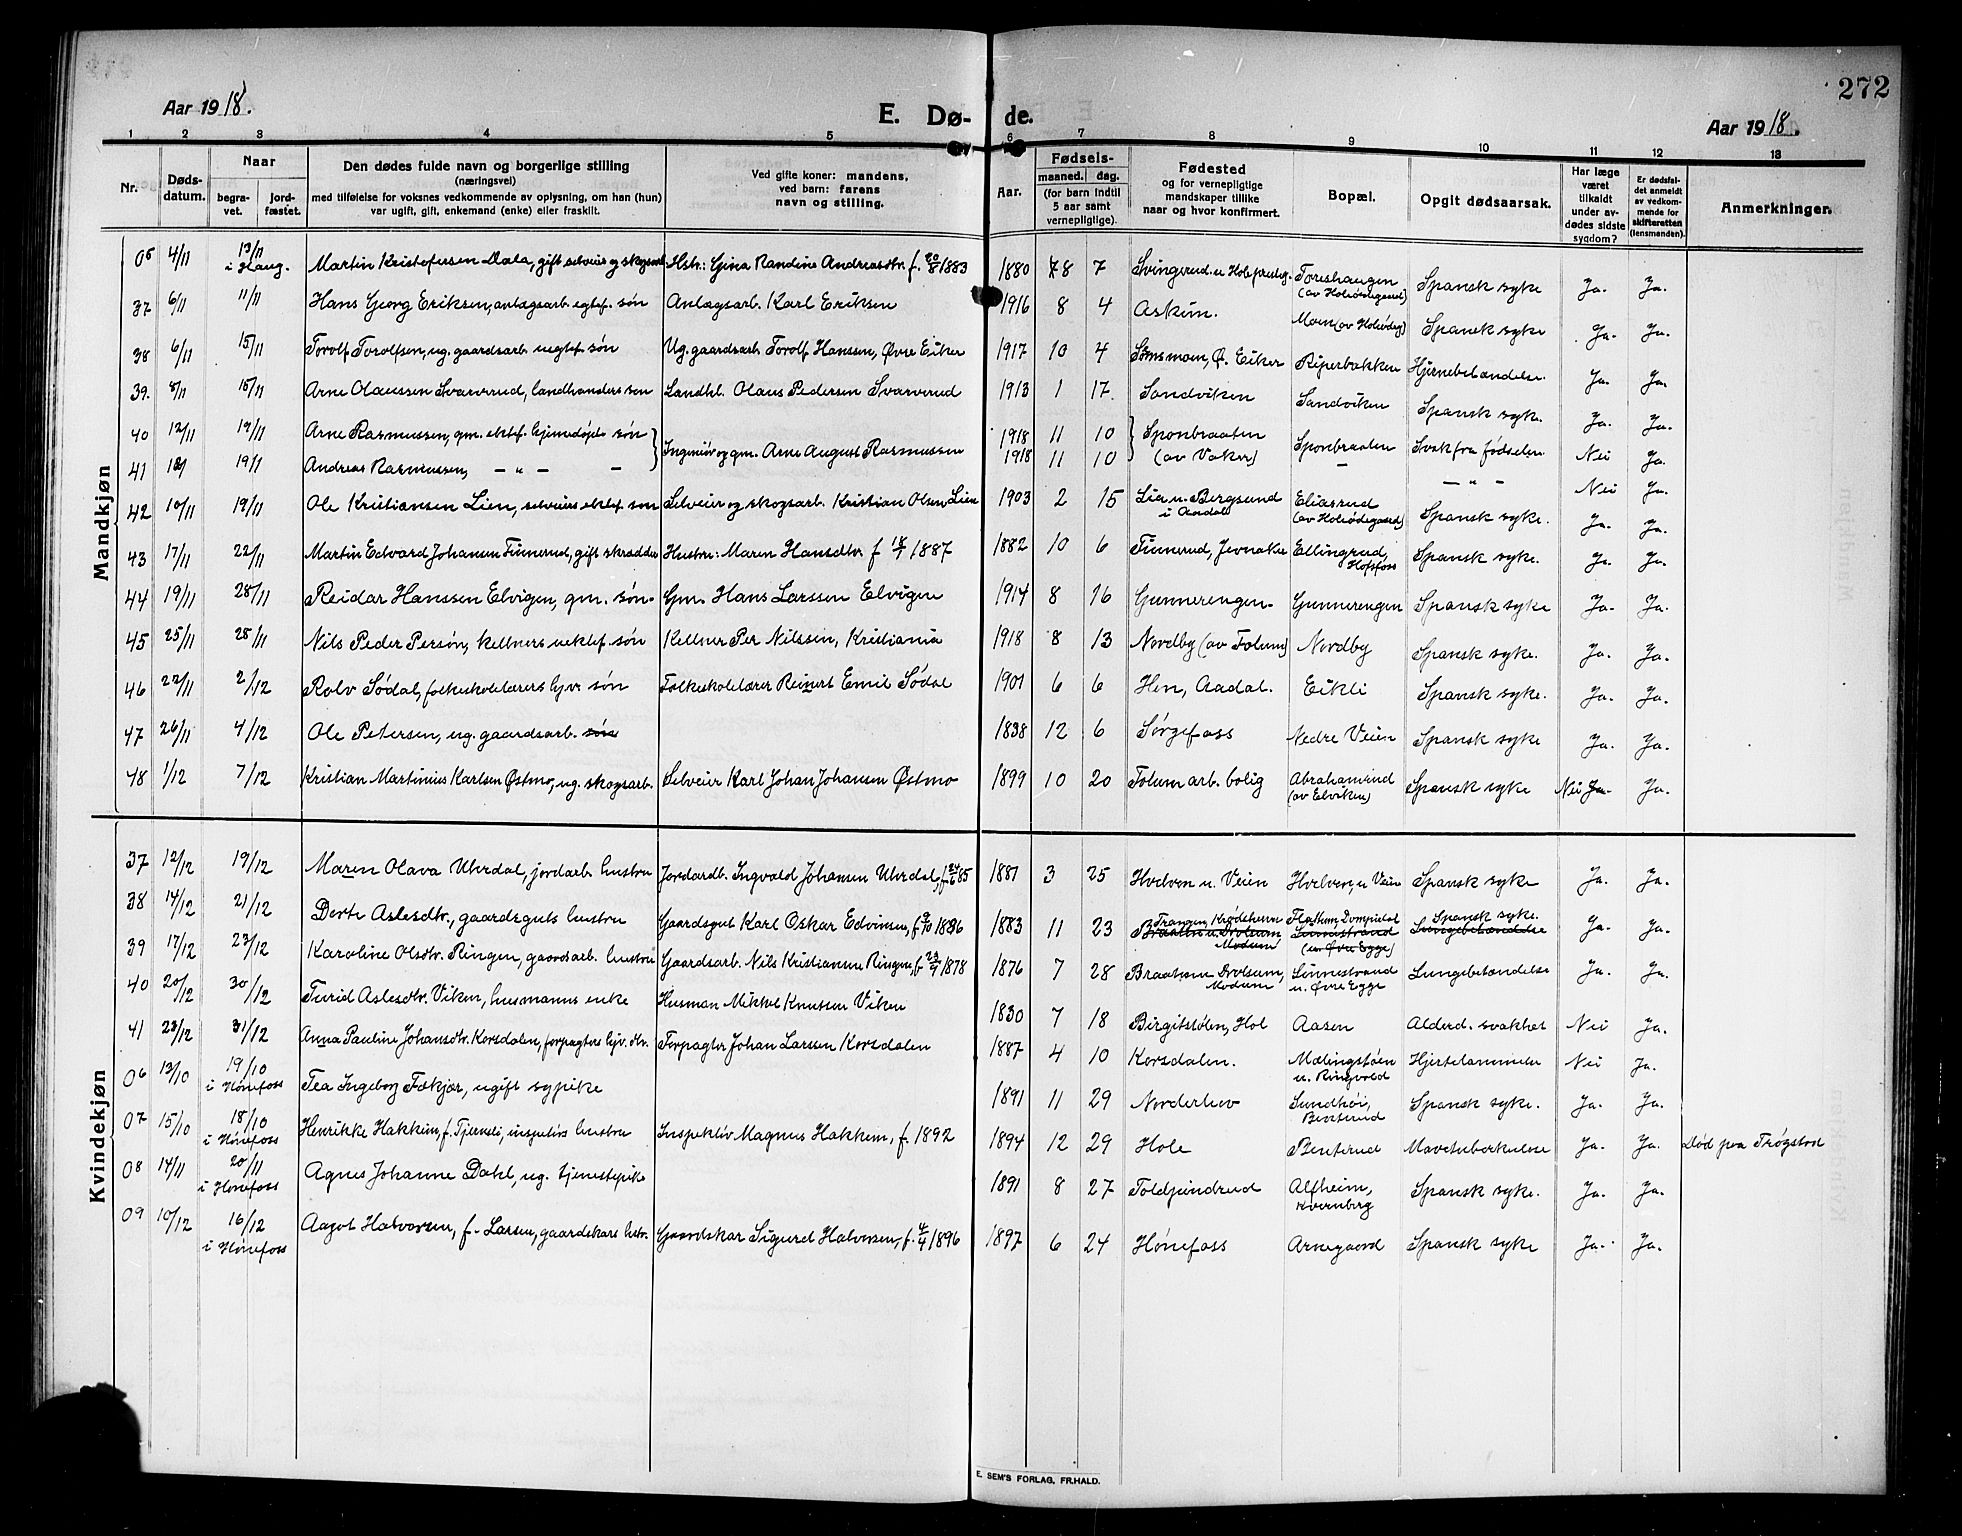 272
Aar 1918.
E. Dø- de.
Aar 1918.
1 2 3 4 5 6 7 8 9 10 11 12 13
Nr.
Døds-
datum.
Naar
begra-
vet.
jord-
fæstet.
Den dødes fulde navn og borgerlige stilling
(næringsvei)
med tilføielse for voksnes vedkommende av oplysning, om han (hun)
var ugift, gift, enkemand (enke) eller fraskilt.
Ved gifte koner: mandens,
ved barn: farens
navn og stilling.
Aar.
Fødsels-
maaned. dag.
(for barn indtil
5 aar samt
vernepligtige).
Fødested
og for vernepligtige
mandskaper tillike
naar og hvor konfirmert.
Bopæl.
Opgit dødsaarsak.
Har læge
været
tilkaldt
under av-
dødes sidste
sygdom?
Er dødsfal-
det anmeldt
av vedkom-
mende for
skifteretten
(lensmanden).
Anmerkninger.
Mandkjøn
05 4/11 13/11 i Haug. Martin Kristofersen Dala, gift selveier og skogsarb. Hstr: Gina Randine Andreasdtr. f. 20/8 1883 1880 8 7 Svingerud u. Hole prestegj. Toreshaugen (av Holsødegaard) Spansk syke Ja. Ja.
37 6/11 11/11 Hans Georg Eriksen, anlægsarb. egtef. søn Anlægsarb. Karl Eriksen 1916 8 4 Askim. Moen (av Holsødeg) Spansk syke Ja. Ja.
38 6/11 15/11 Torolf Torolfsen, ug. gaardsarb. uegtef. søn Ug. gaardsarb. Torolf Hanssen, Øvre Eiker 1917 10 4 Semsmoen, Ø. Eiker Piperbakken Hjernebetændelse. Ja. Ja.
39. 8/11 15/11 Arne Olaussen Svarverud, landhandlers søn Landhl. Olaus Pedersen Svarverud 1913 1 17. Sandviken Sandviken Spansk syke. Ja. Ja.
40 12/11 19/11 Arne Rasmussen, gm. ektef. hjemedøpt søn Ingeniør og gm. Arne August Rasmussen 1918 11 10 Sponbraaten (av Vaker) Sponbraaten Svak fra fødselen Nei Ja.
41 19/11 Andreas Rasmussen, — " — — 1918 11 10 — — " — Nei Ja.
42 10/11 19/11 Ole Kristiansen Lien, selveiers ektef. søn Selveier og skogsarb. Kristian Olsen Lien 1903 2 15 Lia u. Bergsund i Aadal Eliasrud (av Holsødegaard) Spansk syke. Ja. Ja.
43 17/11 22/11 Martin Edvard Johansen Finnerud, gift skrædder Hustru: Maren Hansdtr. f 18/7 1887 1882 10 6 Finnerud, Jevnaker Ellingrud, Hofsfoss Spansk syke. Ja. Ja.
44 19/11 28/11 Reidar Hanssen Elvigen, gm. søn. Gm. Hans Larssen Elvigen 1914 8 16 Gunnerengen. Gunnerengen Spansk syke Ja. Ja.
45 25/11 28/11 Nils Peder Persøn, kellners uektef. søn Kellner Per Nilssen, Kristiania 1918 8 13 Nordby (av Tolum) Nordby Spansk syke. Ja. Ja.
46 22/11 2/12 Rolv Sødal, folkeskolelærers hjv. søn Folkeskolelærer Reinert Emil Sødal 1901 6 6 Hen, Aadal. Eikli Spansk syke. Ja. Ja.
47 26/11 4/12 Ole Petersen, ug. gaardsarb. søn 1838 12 6 Sørgefoss Nedre Veien Spansk syke Ja. Ja.
48 1/12 7/12 Kristian Martinius Karlsen Østmo, ug. skogsarb. Selveier Karl Johan Johansen Østmo 1899 10 20 Tolum arb. bolig Abrahamsrud (av Elviken) Spansk syke Nei Ja. Ja.
Kvindekjøn
37 12/12 19/12 Maren Olava Uhrdal, jordarb. hustru Jordarb. Ingvald Johansen Uhrdal, f. 24/6 85 1881 3 25 Hvelven u. Veien Hvelven, u Veien Spansk syke Ja. Ja.
38 14/12 21/12 Dorte Aslesdtr., gaardsguts hustru Gaardsgut Karl Oskar Edvinsen, f. 9/10 1896 1883 11 23 Trangen, Krødsheren Braaten u. Drolsum Modum Flaskum, Dompidal Linnestrand (u. Øvre Egge) Spansk syke. Lungebetændelse Ja. Ja.
39 17/12 23/12 Karoline Olsdtr. Ringen, gaardsarb. hustru Gaardsarb. Nils Kristiansen Ringen, f. 23/9 1878 1876 7 28 Braaten Drolsum, Modum Linnestrand u. Øvre Egge Lungebetændelse Ja. Ja.
40 20/12 30/12 Turid Aslesdtr. Viken, husmanns enke Husman Mikkel Knutsen Viken 1830 7 18 Birgitstølen, Hol Aasen Alderd. svakhet Nei Ja.
41 23/12 31/12 Anna Pauline Johansdtr. Korsdalen, forpagters hjv. dtr. Forpagter Johan Larssen Korsdalen 1887 4 10 Korsdalen. Mælingstøen u. Ringvold Hjertelammelse Nei Ja.
06 13/10 19/10 i Hønefoss Tea Ingeborg Fækjær, ugift sypike 1891 11 29 Norderhov Sundhøi, Benterud Spansk syke. Ja. Ja.
07 15/10 18/10 i Hønefoss Henrikke Hakkim, f. Tjernsli, inspektørs hustru Inspektør Magnus Hakkem, f. 1892 1894 12 29 Hole Benterud Mavetuberkulose Ja. Ja. Død paa Trøgstad
08 14/11 20/11 i Hønefoss Agnes Johanne Dahl, ug. tjenestepike 1891 8 27 Toldpindrud Alfheim, Kvernberg Spansk syke. Ja. Ja.
09 10/12 16/12 i Hønefoss Aagot Halvorsen, f. Larsen, gaardskars hstr. Gaardskar Sigurd Halvorsen, f. 4/4 1896 1897 6 24 Hønefoss Arnegaard Spansk syke Ja. Ja.
E. SEM'S FORLAG, FR.HALD.